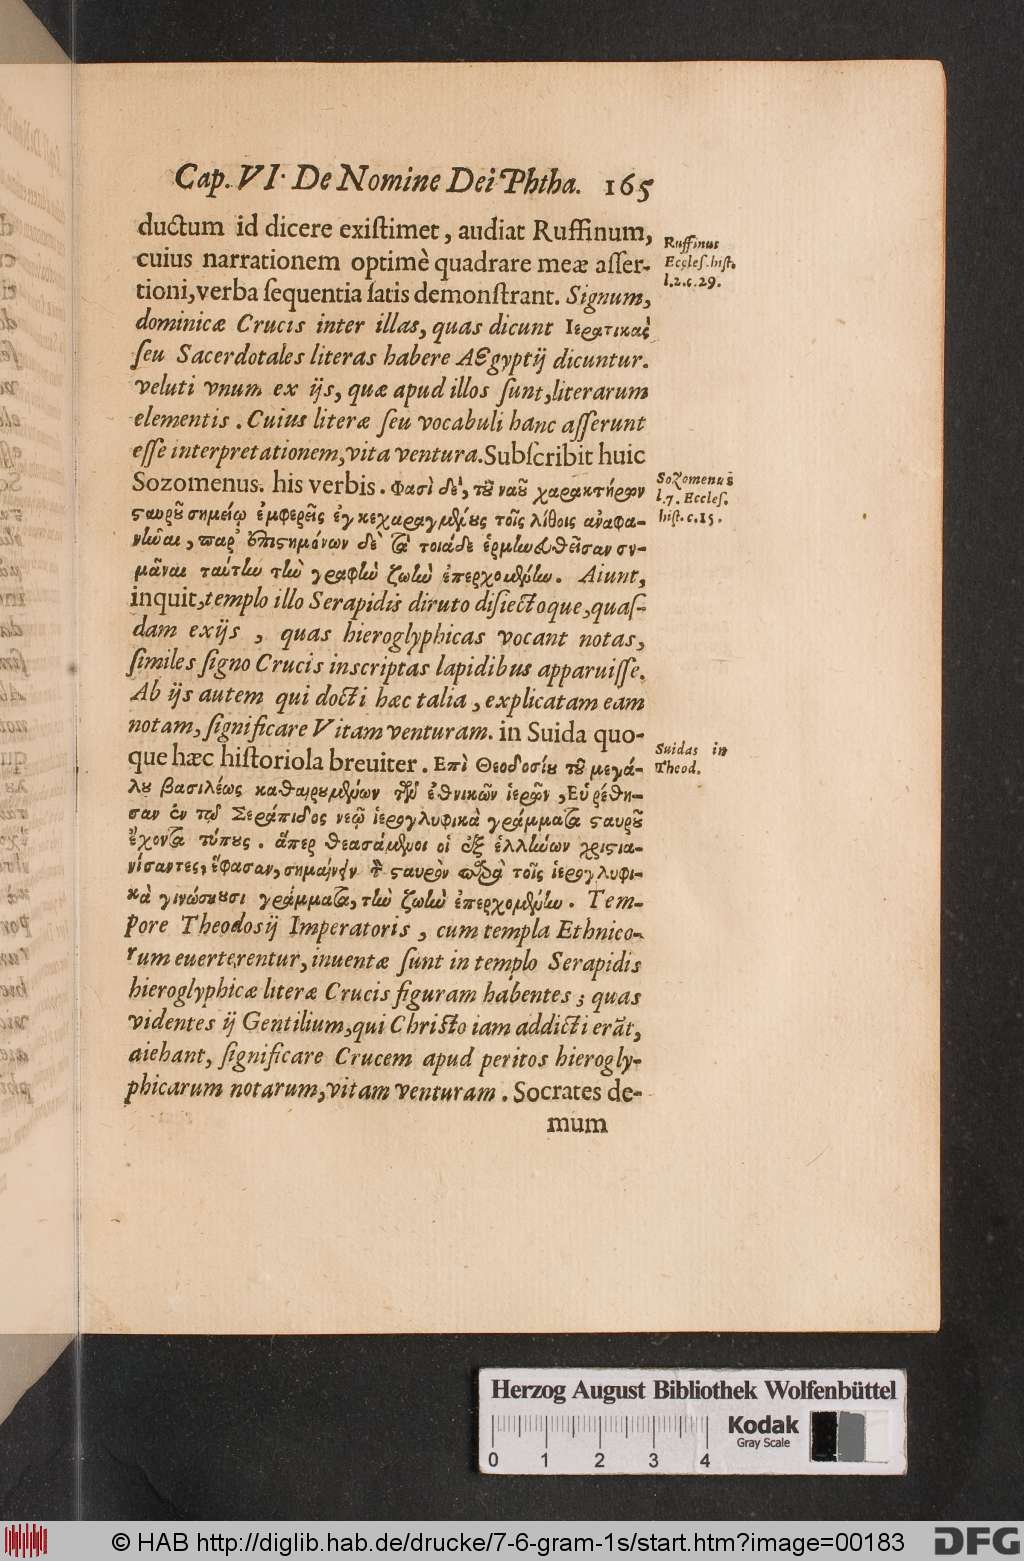 Cap. VI. De Nomine Dei Phtha. 165
ductum id dicere exiſtimet, audiat Ruffinum,
cuius narrationem optimè quadrare meæ aſſer-
tioni, verba ſequentia ſatis demonſtrant. Signum,
dominicæ Crucis inter illas, quas dicunt Ιερατικας
ſeu Sacerdotales literas habere Ægyptij dicuntur.
veluti vnum ex ijs, quæ apud illos ſunt, literarum
elementis. Cuius literæ ſeu vocabuli hanc aſſerunt
eſſe interpretationem, vita ventura. Subſcribit huic
Sozomenus. his verbis. Φασὶ δὲ, τȣ̃ ναȣ̃ χαρακτήρων
ϛαυρȣ̃ σημείῳ ἐμφερεῖς ἐγκεχαραγμένȣς τοῖς λίθοις ἀναφα-
νῆναι, παρ᾽ ἐπιϛημόνων δὲ τὰ τοιάδε ἑρμηνευθεῖσαν ση-
μᾶναι ταύτην τὴν γραφὴν ζωὴν ἐπερχομένην. Aiunt,
inquit, templo illo Serapidis diruto diſiectoque, quaſ-
dam ex ijs, quas hieroglyphicas vocant notas,
ſimiles ſigno Crucis inscriptas lapidibus apparuiſſe.
Ab ijs autem qui docti hæc talia, explicatam eam
notam, ſignificare Vitam venturam. in Suida quo-
que hæc hiſtoriola breuiter. Επὶ Θεοδοσίȣ τȣ̃ μεγά-
λȣ βασιλέως καθαιρȣμένων τῶν ἐθνικῶν ἱερῶν, Εὑρέθη-
σαν ἐν τῷ Σεράπιδος νεῷ ἱερογλυφικὰ γράμματα ϛαυρȣ̃
ἔχοντα τύπȣς. ἅπερ θεασάμενοι οἱ ἐξ ἑλλήνων χριϛια-
νίσαντες, ἔφασαν, σημαίνειν τὸν ϛαυρὸν παρὰ τοῖς ἱερογλυφι-
κὰ γινώσκȣσι γράμματα, τὴν ζωὴν ἐπερχομένην. Tem-
pore Theodosij Imperatoris, cum templa Ethnico-
rum euerterentur, inuentæ ſunt in templo Serapidis
hieroglyphicæ literæ Crucis figuram habentes; quas
videntes ij Gentilium, qui Christo iam addicti erāt,
aiebant, ſignificare Crucem apud peritos hierogly-
phicarum notarum, vitam venturam. Socrates de-
mum
Ruffinus
Eccleſ. hiſt.
l.2.c.29.
Sozomenus
l.7. Eccleſ.
hiſt. c.15.
Suidas in
Theod.
Herzog August Bibliothek Wolfenbüttel
Kodak
Gray Scale
0 1 2 3 4
© HAB http://diglib.hab.de/drucke/7-6-gram-1s/start.htm?image=00183
DFG